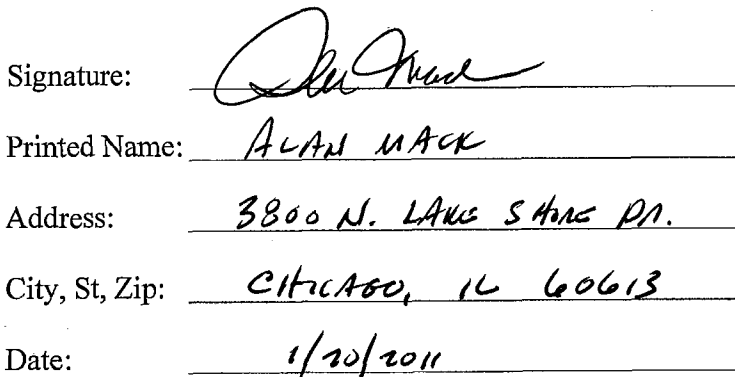 Signature: Alan Mack
Printed Name: ALAN MACK
Address: 3800 N. LAKE SHORE DR.
City, St, Zip: CHICAGO, IL 60613
Date: 1/20/2011